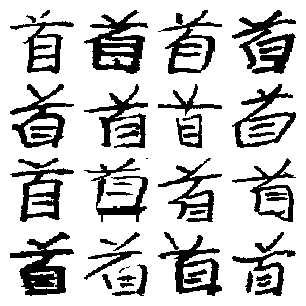 首首首首
首首首首
首首首首
首首首首